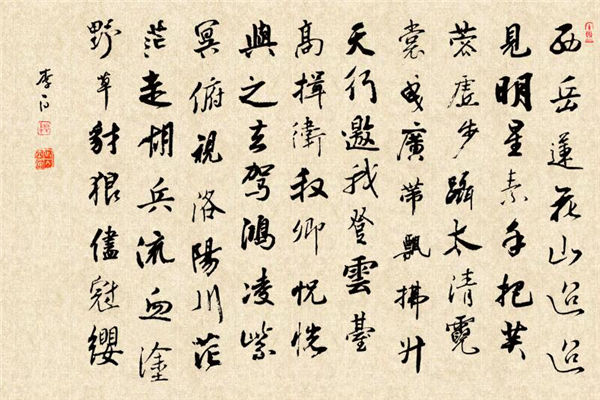 西岳蓮花山迢迢
見明星素手把芙
蓉虛步躡太清霓
裳曳廣帶飄拂升
天行邀我登雲臺
高揖衛叔卿恍恍
與之去駕鴻凌紫
冥俯視洛陽川茫
茫走胡兵流血塗
野草豺狼儘冠纓
李白